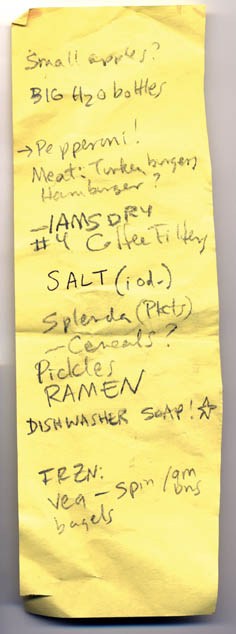 Small apples?
BIG H2O bottles
→Pepperoni!
Meat: Turkey burgers,
Hamburger?
—IAMS DRY
#4 Coffee Filters
SALT (iod-)
Splenda (Pkts)
—Cereals?
Pickles
RAMEN
DISHWASHER SOAP! ☆
FRZN:
veg — spin / grn
bns
bagels